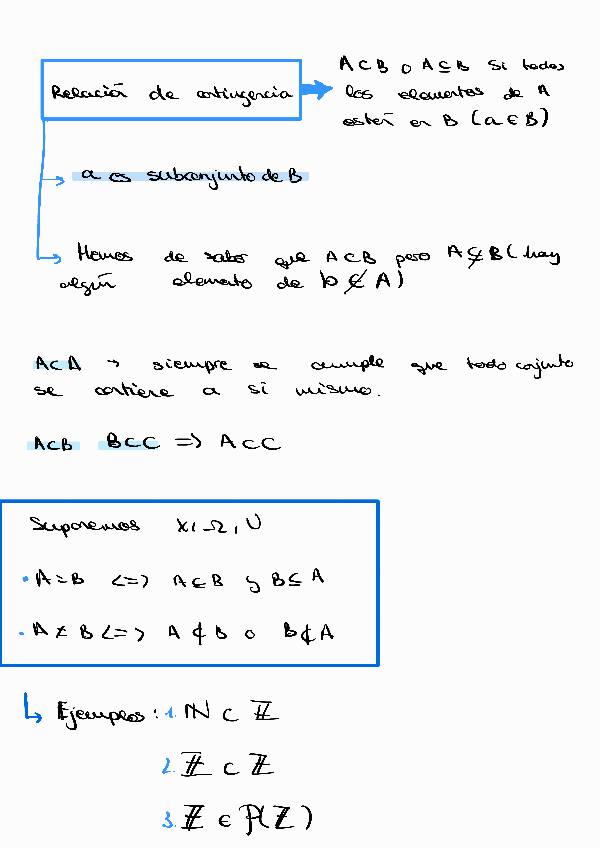 Relación de contingencia
A⊂B o A⊆B si todos
los elementos de A
están en B (a∈B)
a es subconjunto de B
Hemos de saber que A⊂B pero A⊊B (hay
algún elemento de b∉A)
A⊂A → siempre se cumple que todo conjunto
se contiene a sí mismo.
A⊂B B⊂C => A⊂C
Suponemos X, Ω, U
• A=B <=> A⊆B y B⊆A
• A≠B <=> A⊄B o B⊄A
Ejemplos: 1. ℕ ⊂ ℤ
2. ℤ ⊂ ℤ
3. ℤ ∈ P(ℤ)